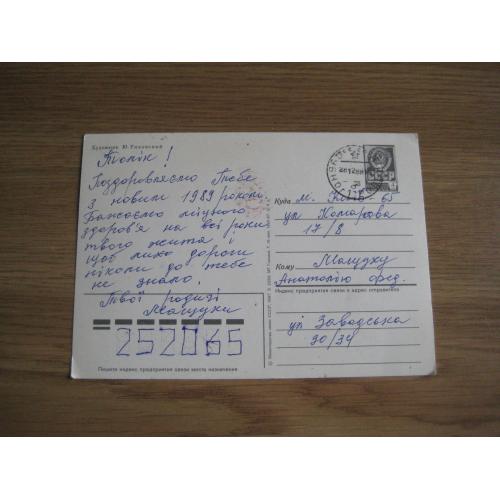 Художник Ю.
Толік!
Поздоровляємо Тебе
з новим 1989 роком
Бажаємо міцного
здоров'я на всі роки
твого життя і
щоб лихо дороги
ніколи до тебе
не знало.
Твої родичі
Мащухи
252065
Пишите индекс предприятия связи места назначения
СССР
Куда м. Київ 65
ул Комарова
17/8
Кому Мащуху
Анатолію Фед.
Индекс предприятия связи и адрес отправителя
ул Заводська
30/34